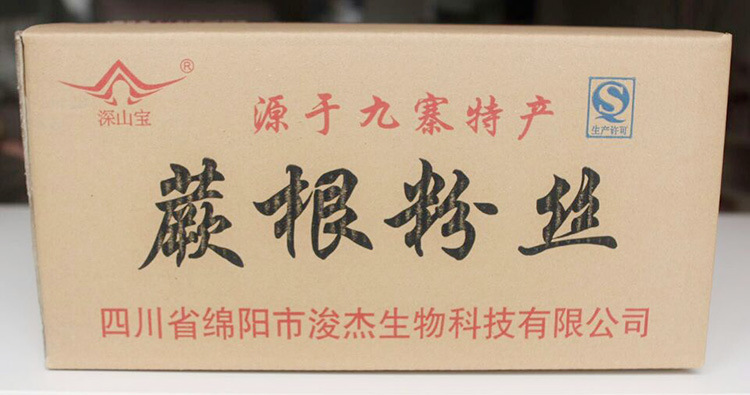 深山宝®
源于九寨特产
QS
生产许可
蕨根粉丝
四川省绵阳市浚杰生物科技有限公司